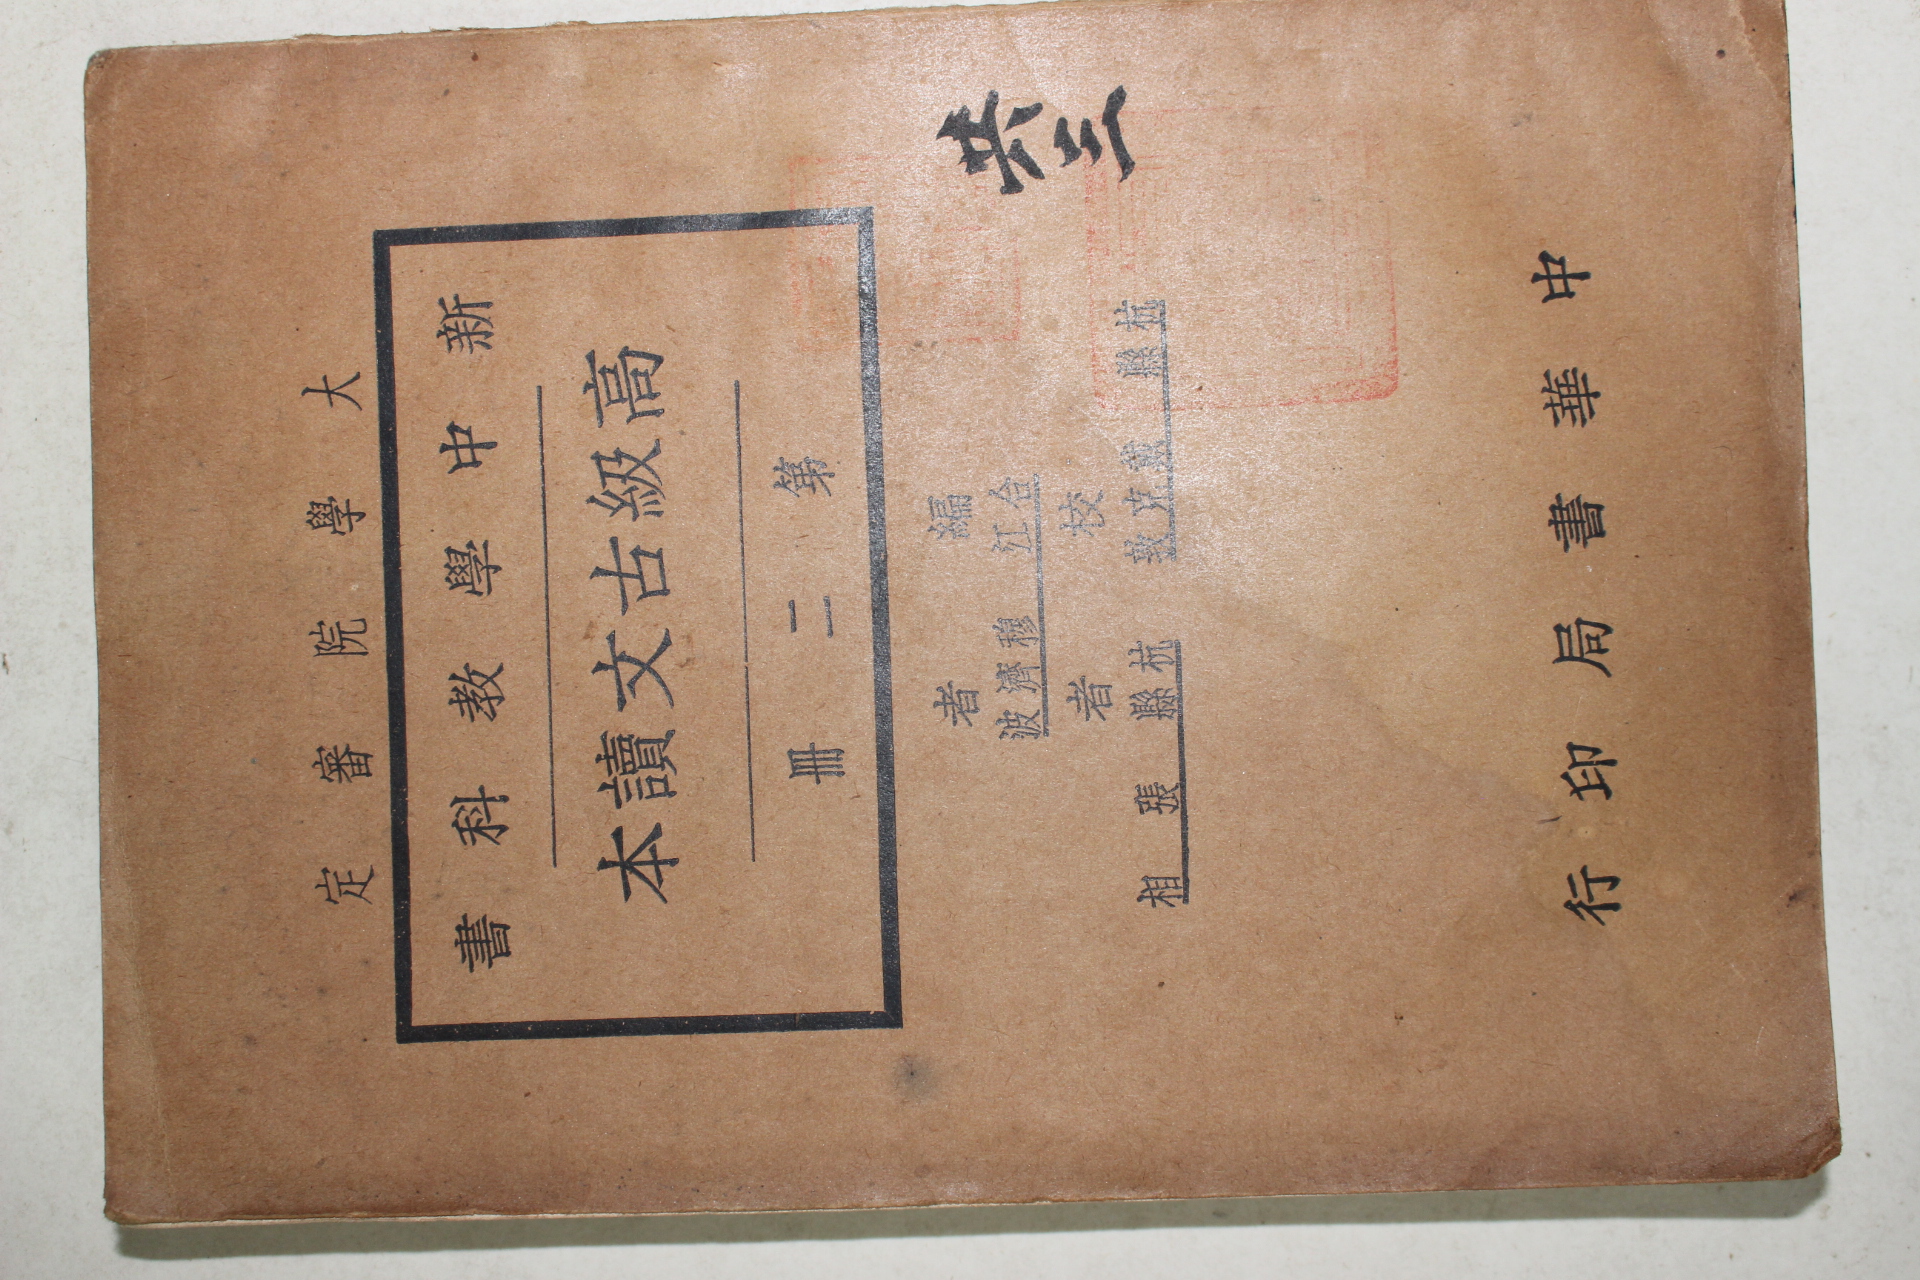 大學院審定
新中學教科書
高級古文讀本
第二冊
編者
合江 穆濟波
校者
杭縣 戴克敦
杭縣 張相
中華書局印行
共三